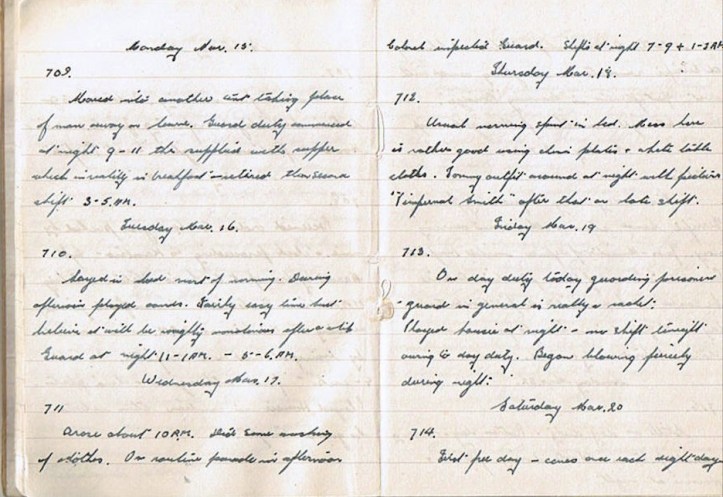 Monday Mar. 15.
709.
Moved into another tent taking place
of man away on leave. Guard duty commenced
at night 9-11 then supplied with supper
which in reality is breakfast - retired then second
shift 3-5 AM.
Tuesday Mar. 16.
710.
Stayed in bed most of morning. During
afternoon played cards. Fairly easy time but
believe it will be mighty monotonous after a bit
Guard at night 11-1 AM. - 5-6 AM.
Wednesday Mar. 17.
711
Arose about 10 AM. Did some washing
of clothes. On routine parade in afternoon
Colonel inspected Guard. Shifts at night 7-9 + 1-3 AM
Thursday Mar. 18.
712.
Usual morning spent in bed. Mess here
is rather good using china plates + white table
cloths. outfit around at night with pictures
"Smith" after that on late shift.
Friday Mar. 19
713.
On day duty today guarding prisoners
- guard in general is really a racket!
Played housie at night - no shift tonight
owing to day duty. Began blowing fiercely
during night!
Saturday Mar. 20
714.
First free day - comes once each eight days